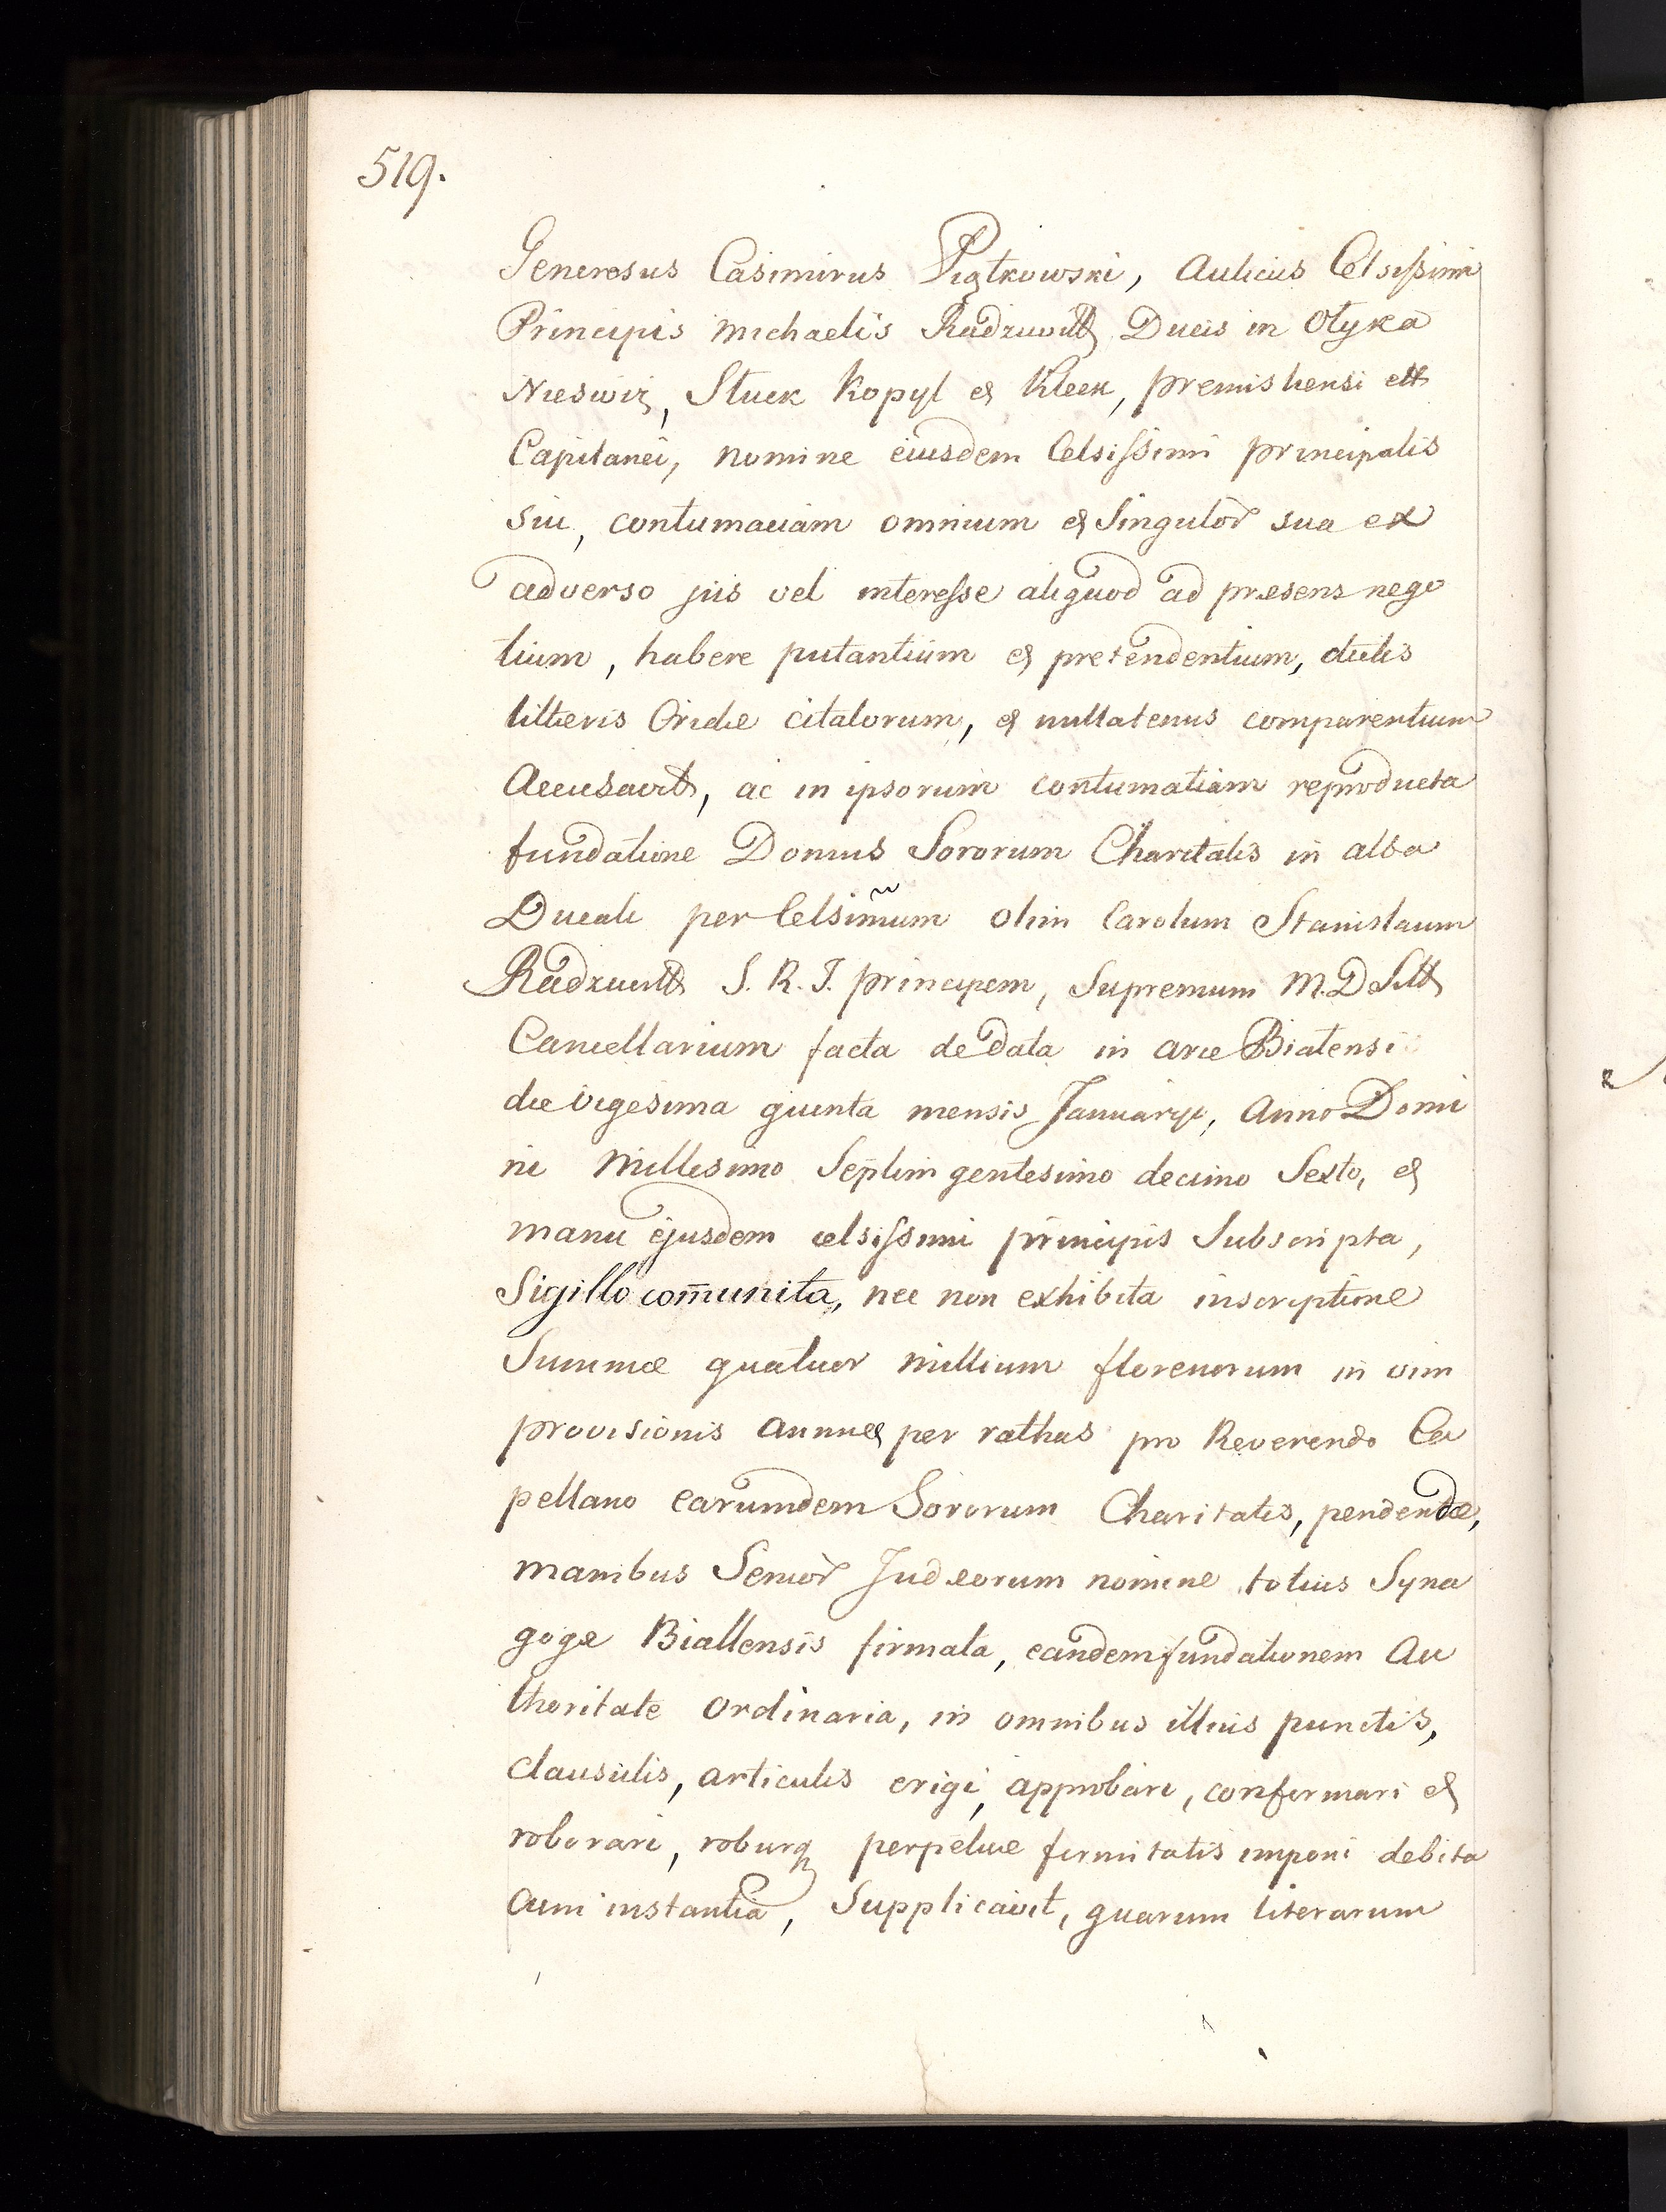 519.
Generosus Casimirus Piątkowski, Aulicus Celsissimi
Principis Michaelis Radziwiłł Ducis in Otyka
Nieswiż, Stuck Kopyl et Kleck, premisliensi ett
Capitanei, nomine eiusdem Celsissimi principalis
sui, contumaciam omnium et Singulor sua ex
adverso jus vel interesse aliquod ad præsens nego
tium, habere putantium et pretendentium,
litteris citatorum, et nullatenus comparentium
Accusavit, ac in ipsorum contumatiam reproducta
fundatione Domus Sororum Charitatis in alba
Ducali per Celsim̃um olim Carolum Stanislaum
Radziwiłł S. R. I. principem, Supremum M. D Litt
Cancellarium facta de data in arce Bialensi
die vigesima quinta mensis Januarij, Anno Domi
ni Millesimo Septingentesimo decimo Sexto, et
manu ejusdem celsissimi principis Subscripta,
Sigillo com̄unita, nec non exhibita inscriptione
Summæ quatuor millium florenorum in vim
provisionis annuæ per rathas pro Reverendo Ca
pellano earumdem Sororum Charitatis, pendendæ,
manibus Senior Judæorum nomine totius Syna
gogæ Biallensis firmata, eandem fundationem Au
thoritate ordinaria, in omnibus illius punctis,
clausulis, articulis erigi, approbari, confirmari et
roborari, roburq perpetuæ firmitatis imponi debita
cum instantia, Supplicavit, quarum literarum